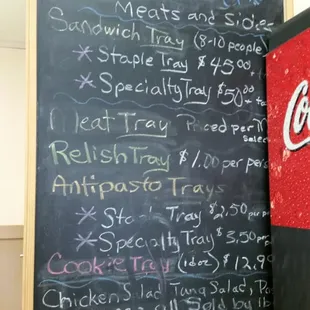 Meats and Sides
Sandwich Tray (8-10 people)
* Staple Tray $45.00
* Specialty Tray $50.00
Meat Tray Priced per
Relish Tray $1.00 per pers
Antipasto Trays
* Tray $2.50 per
* Specialty Tray $3.50 per
Cookie Tray (1 doz) $12.9
Chicken Salad Tuna Salad,
Sold by lb
Co